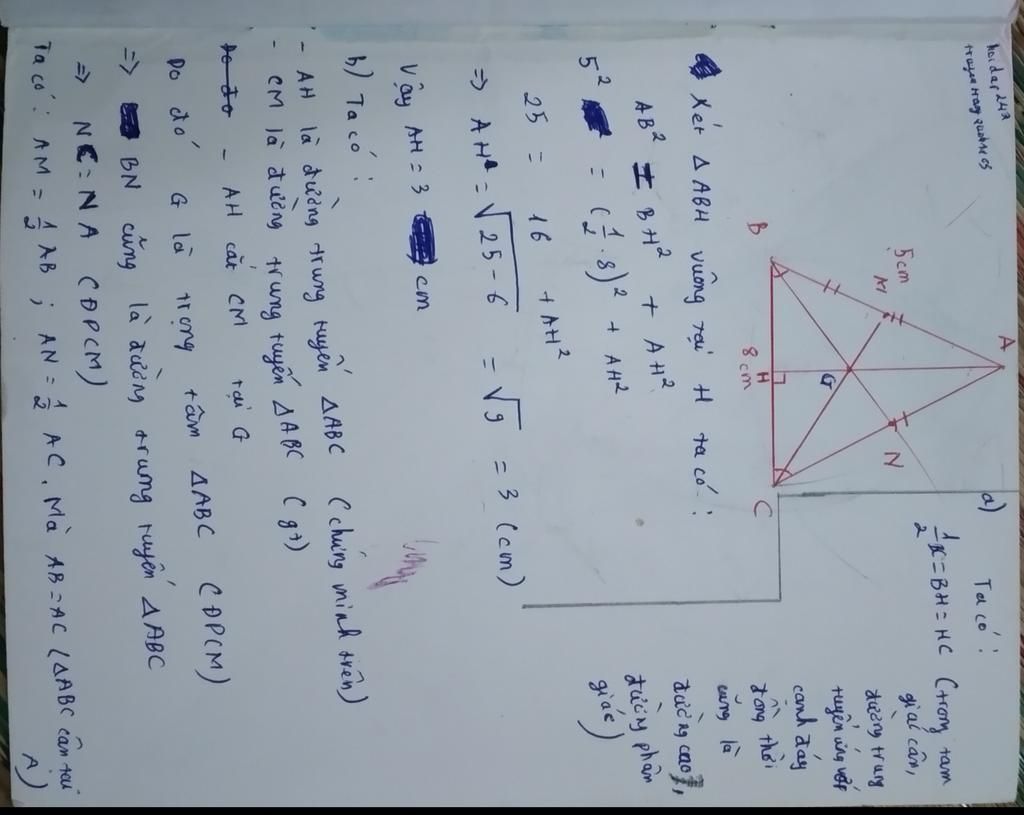 hoidap247
A
5cm
M
N
G
B
H
8cm
C
a) Ta có :
1/2 = BH = HC (trong tam
giác cân,
đường trung
tuyến ứng với
cạnh đáy
đồng thời
cũng là
đường cao,
đường phân
giác)
Xét ΔABH vuông tại H ta có :
AB² = BH² + AH²
5² = (1/2 . 8)² + AH²
25 = 16 + AH²
⇒ AH = √25 - 6 = √9 = 3 (cm)
Vậy AH = 3 cm
b) Ta có :
- AH là đường trung tuyến ΔABC (chứng minh trên)
- CM là đường trung tuyến ΔABC (gt)
- AH cắt CM tại G
Do đó G là trọng tâm ΔABC (ĐPCM)
⇒ BN cũng là đường trung tuyến ΔABC
⇒ NC = NA (ĐPCM)
Ta có : AM = 1/2 AB ; AN = 1/2 AC . Mà AB = AC (ΔABC cân tại
A)